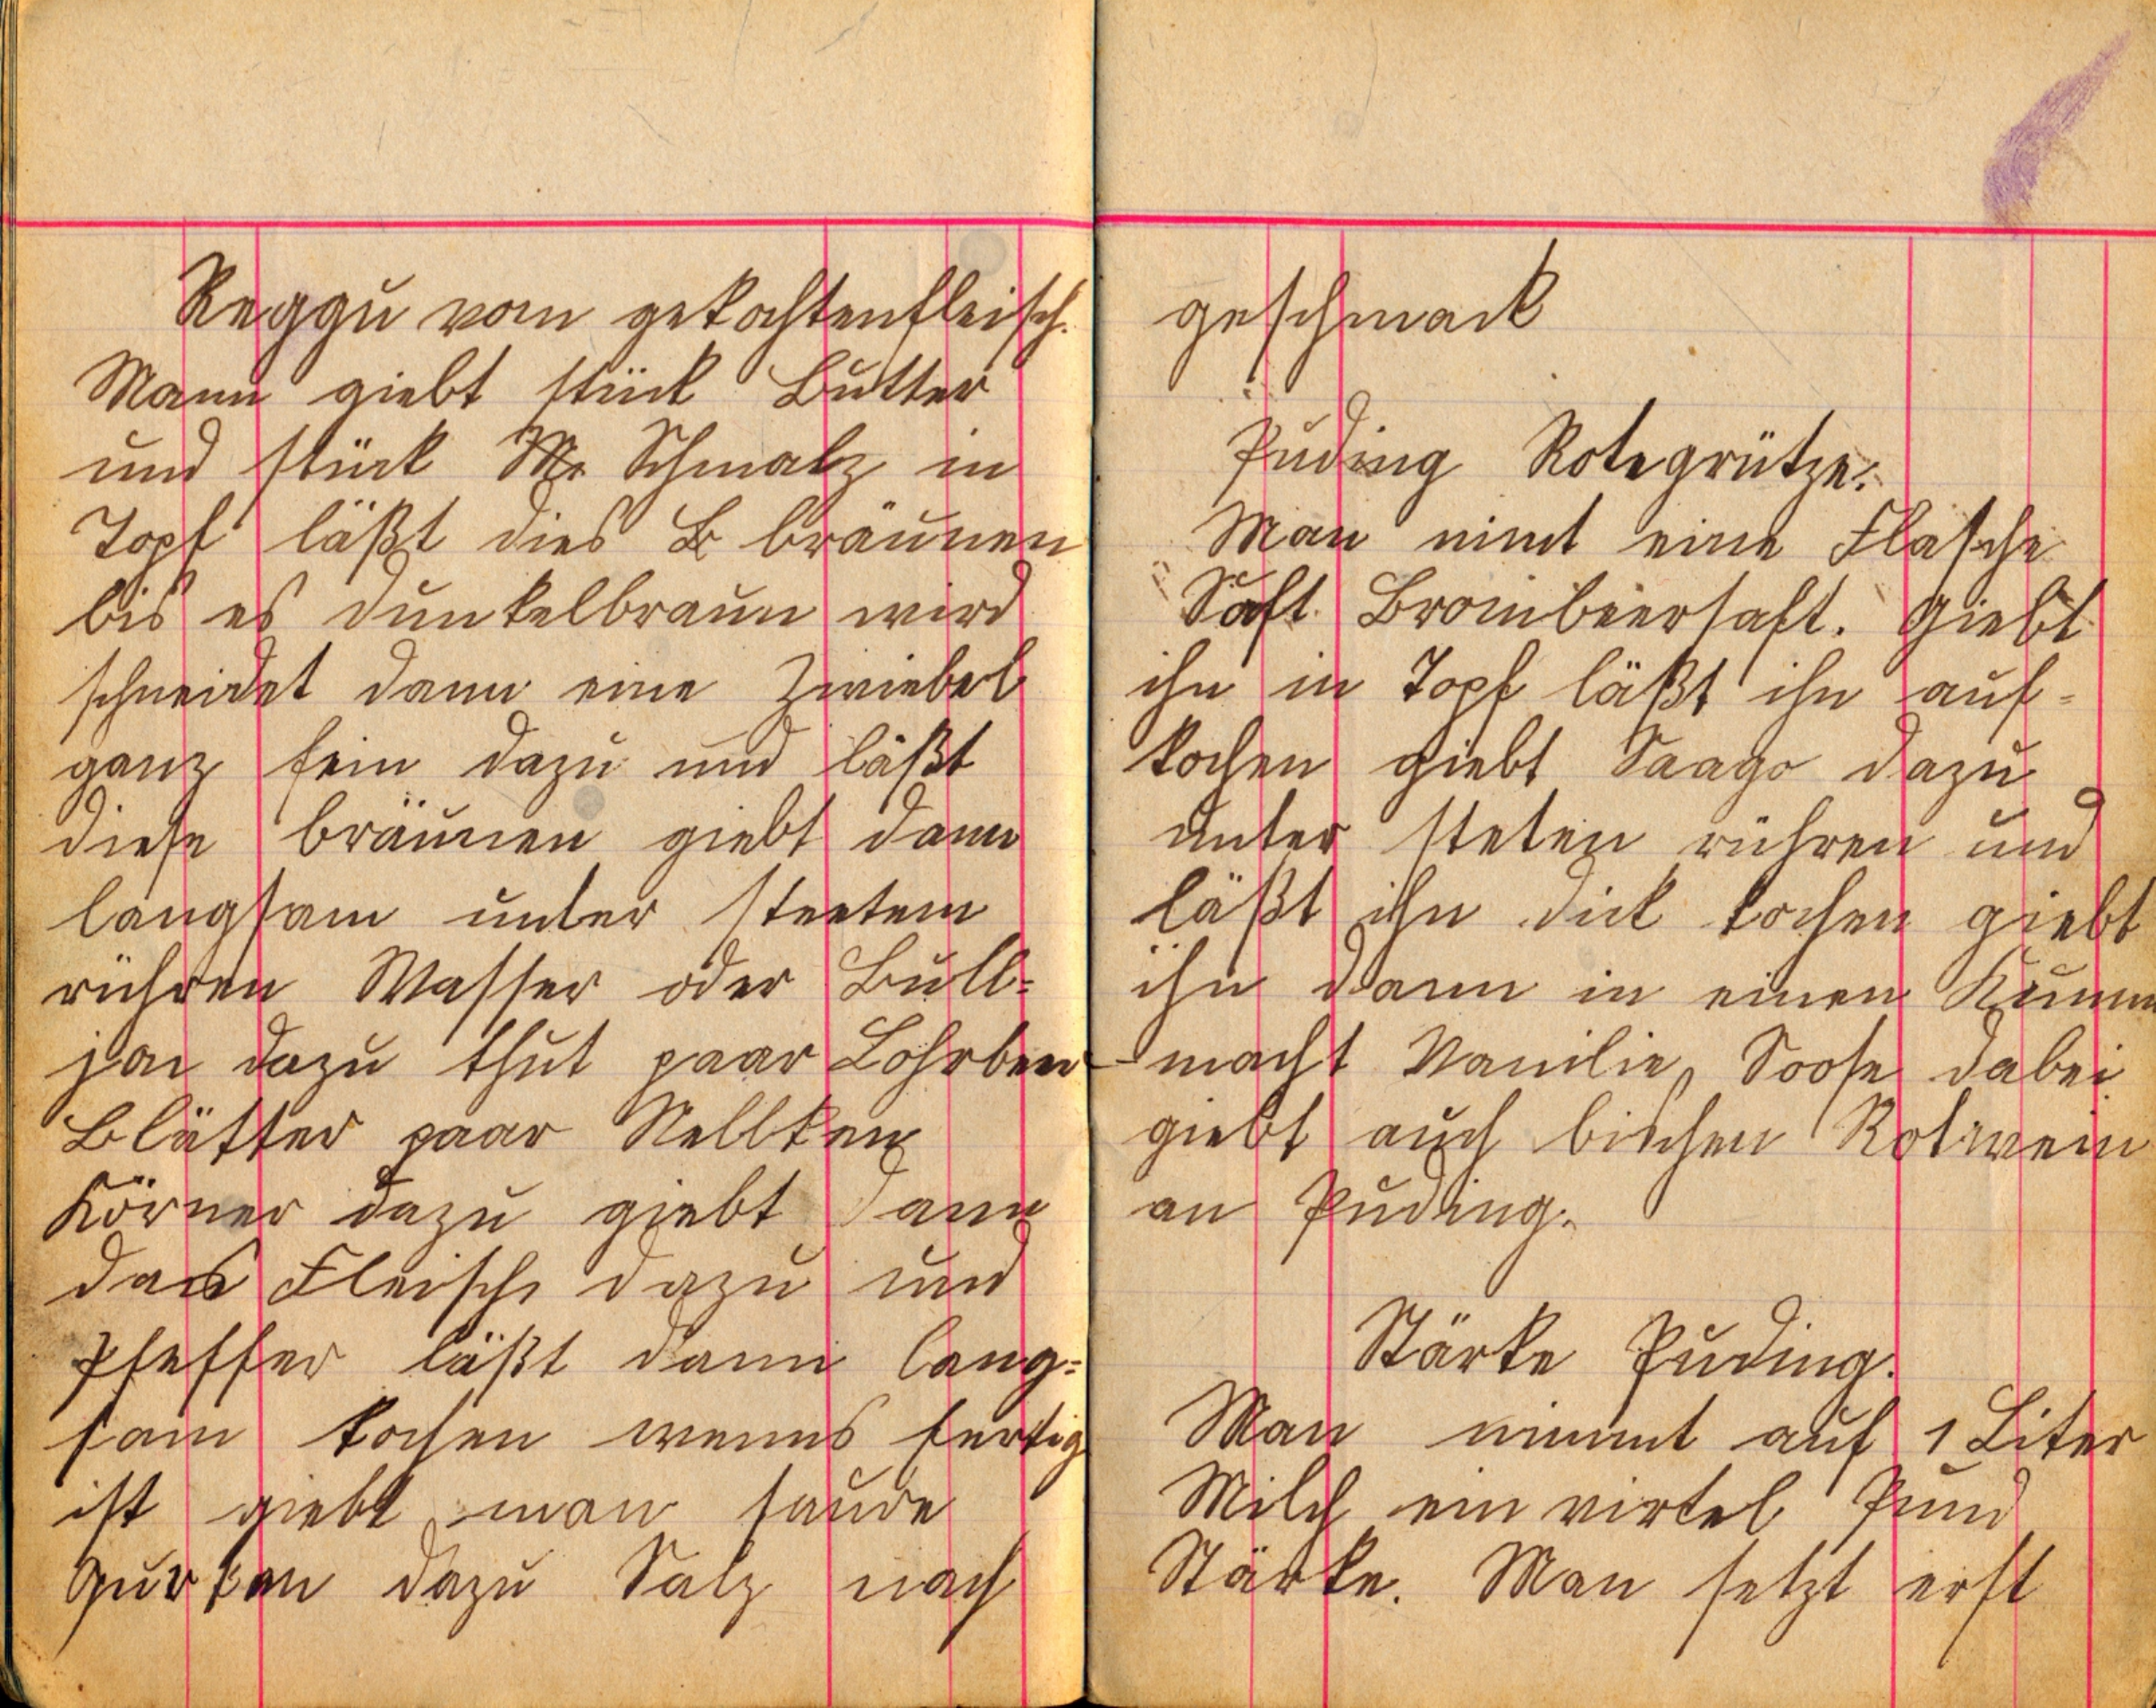 Reggu vom gekochtenfleisch.
Mann giebt stück Butter
und stück Schmalz in
Topf läßt dies B bräunen
bis es dunkelbraun wird
schneidet dann eine Zwiebel
ganz fein dazu und läßt
diese bräunen giebt dann
langsam unter steetem
rühren Wasser oder Bull=
jon dazu thut paar Lohrbeer-
Blätter paar Nellken
Körner dazu giebt dann
das Fleisch dazu und
Pfeffer läßt dann lang=
sam kochen wenns fertig
ist giebt man saure
Gurken dazu Salz nach
geschmack
Puding Rotegrütze.
Man nimt eine Flasche
Saft Brombeersaft. Giebt
ihn in Topf läßt ihn auf=
kochen giebt Saago dazu
unter steten rühren und
läßt ihn dick kochen giebt
ihn dann in einen Kumm
macht Vanilie, Soose dabei
giebt auch bischen Rotwein
an Puding.
Stärke Puding.
Man nimmt auf 1 Liter
Milch ein virtel Pund
Stärke. Man setzt erst